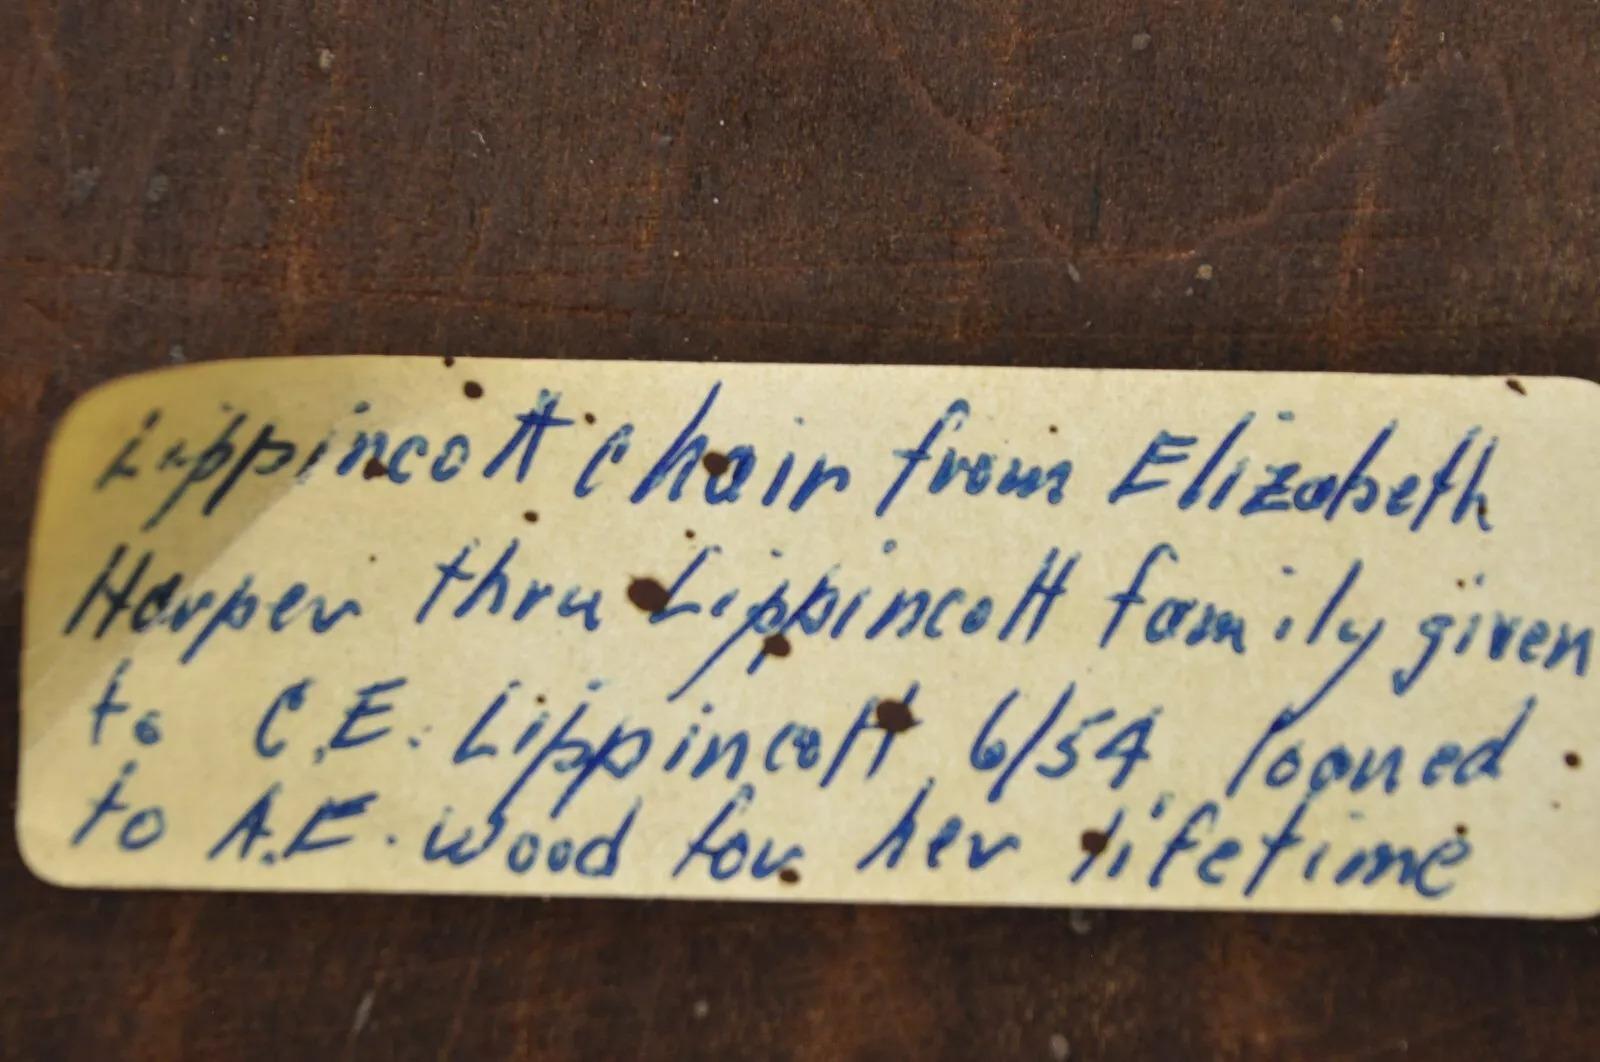 Lippincott chair from Elizabeth
Harper thru Lippincott family given
to C.E. Lippincott 6/54 loaned
to A.E. Wood for her lifetime